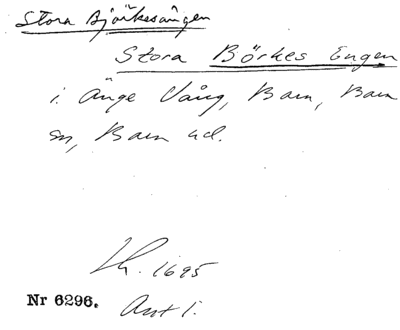 Stora Björkesängen
Stora Börkes Engen
i. Änge Vång, Barn, Barn
sn, Barn hd.
Lh. 1695
Nr 6296. Avt 1.